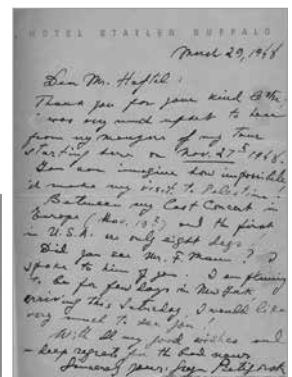 HOTEL STATLER BUFFALO
March 29, 1948
Dear Mr. Haftel:
Thank you for your kind letter
I was very much upset to hear
from my managers of my tour
starting here on Nov. 27th 1948.
You can imagine how impossible
I'd make my visit to Palestine!
Between my last Concert in
Europe (Nov. 19th) and the first
in U.S.A. are only eight days!
Did you see Mr. F. Mann? I
spoke to him of you. I am planning
to be for few days in New York
arriving this Saturday. I would like
very much to see you!
With all my good wishes and
deep regrets for the bad news
Sincerely yours: Piatigorsky